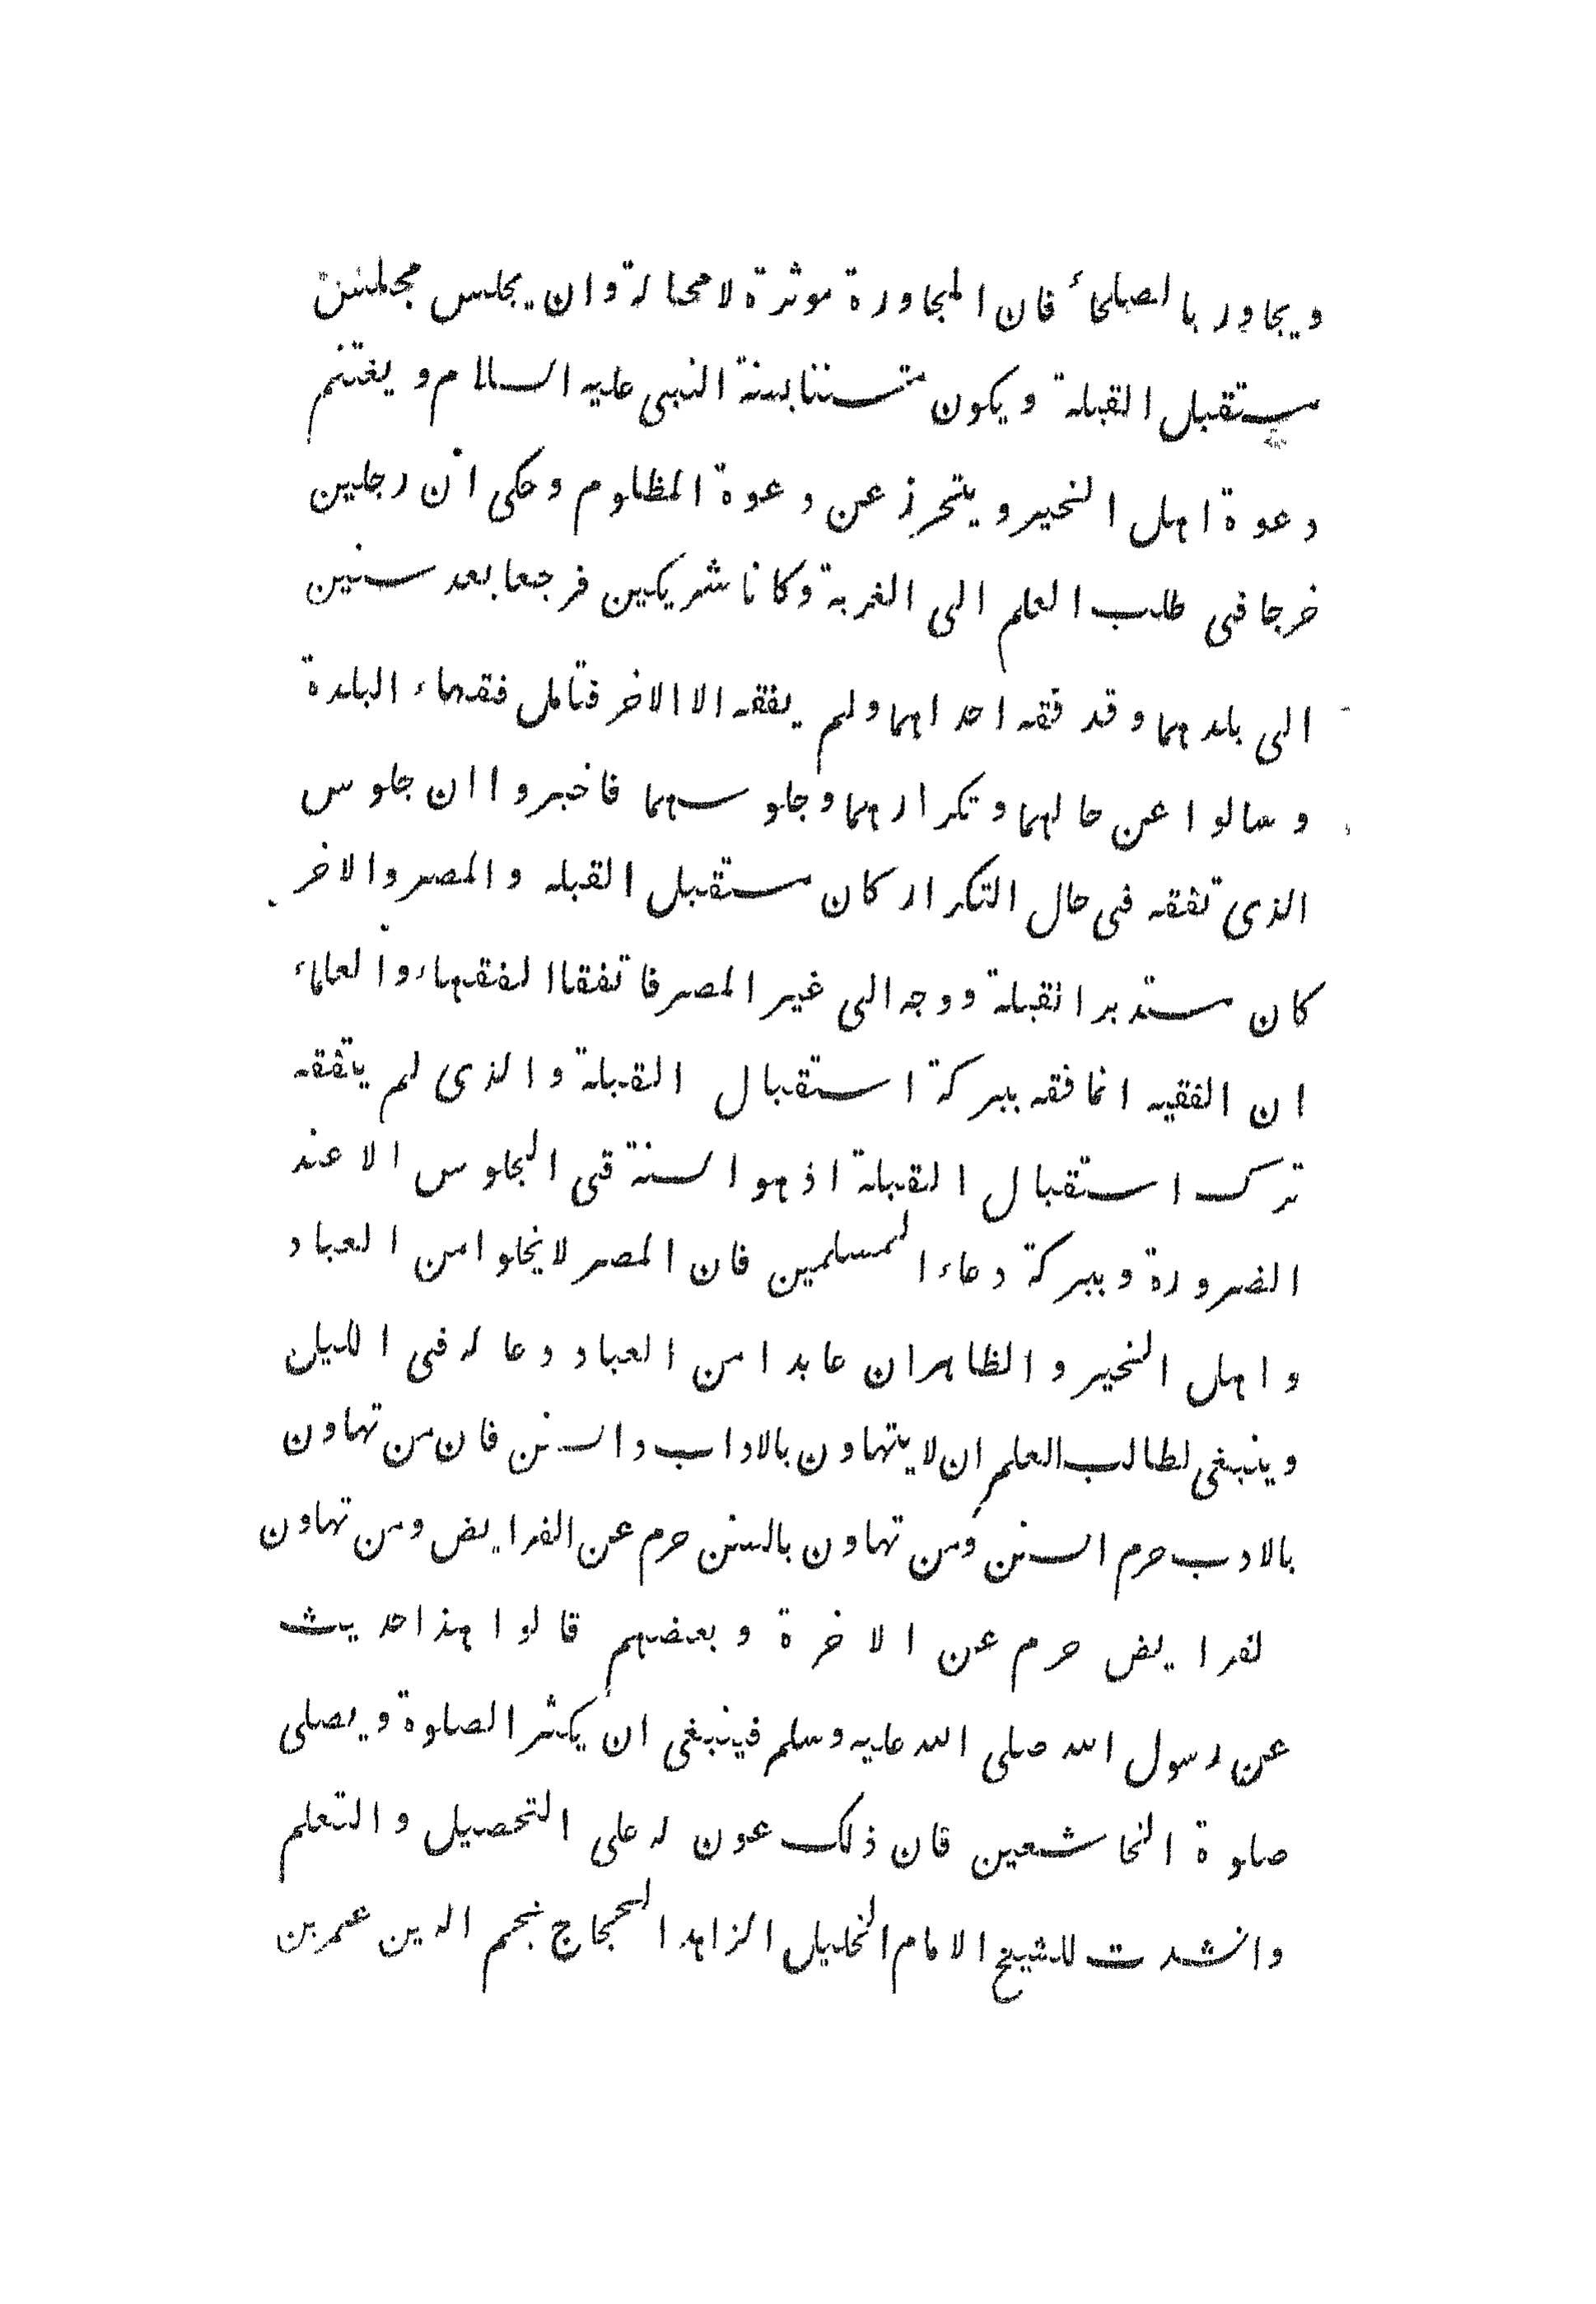 ويجاور بالصلحاء فان المجاورة موثرة لا محالة وان يجلس
مستقبل القبلة ويكون متسننا بسنة النبى عليه السلام ويغتنم
دعوة اهل الخير ويتحرز عن دعوة المظلوم وحكى ان رجلين
خرجا فى طلب العلم الى الغربة وكانا شريكين فرجعا بعد سنين
الى بلدهما وقد فقه احداهما ولم يفقه الا الاخر فتامل فقهاء البلدة
وسالوا عن حالهما وتكرارهما وجلوسهما فاخبروا ان جلوس
الذى تفقه فى حال التكرار كان مستقبل القبله والمصر والاخر
كان مستدبر القبلة ووجه الى غير المصر فاتفقا الفقهاء والعلماء
ان الفقيه انما فقه ببركة استقبال القبلة والذى لم يتفقه
ترك استقبال القبلة اذ هو السنة فى الجلوس الا عند
الضرورة وببركة دعاء المسلمين فان المصر لا يخلوا من العباد
واهل الخير والظاهر ان عابدا من العباد دعا له فى الليل
وينبغى لطالب العلم ان لا يتهاون بالاداب والسنن فان من تهاون
بالادب حرم السنن ومن تهاون بالسنن حرم عن الفرايض ومن تهاون
لفرايض حرم عن الاخرة وبعضهم قالوا هذا حديث
عن رسول الله صلى الله عليه وسلم فينبغى ان يكثر الصلوة ويصلى
صلوة الخاشعين فان ذلك عون له على التحصيل والتعلم
وانشدت للشيخ الامام الخليل الزاهد الحجاج نجم الدين عمر بن